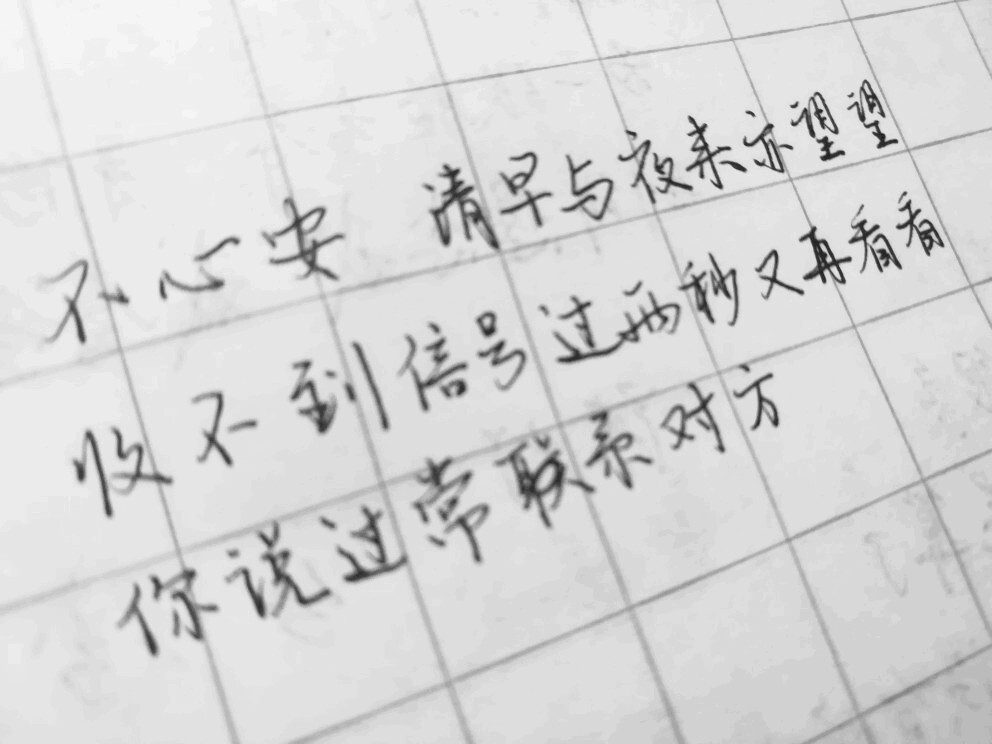 不心安 清早与夜来亦望望
收不到信号过两秒又再看看
你说过常联系对方